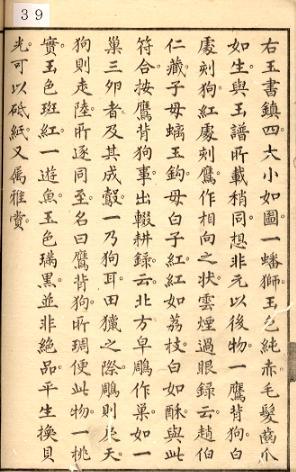 39
右玉書鎮四大小如圖一蟠獅玉色純赤毛髮齒爪
如生與玉譜所載稍同想非元以後物一鷹背狗白
處刻狗紅處刻鷹作相向之狀雲煙過眼錄云趙伯
仁藏子母螭玉鉤母白子紅紅如荔枝白如酥與此
符合按鷹背狗事出輟耕錄云北方卑鵰作巢如一
巢三卵者及其成鷇一乃狗耳田獵之際鵰則戾天
狗則走陸所逐同至名曰鷹背狗所琱便此物一桃
實玉色斑紅一遊魚玉色璊黑並非絶品平生換貝
光可以砥紙又屬雅賞